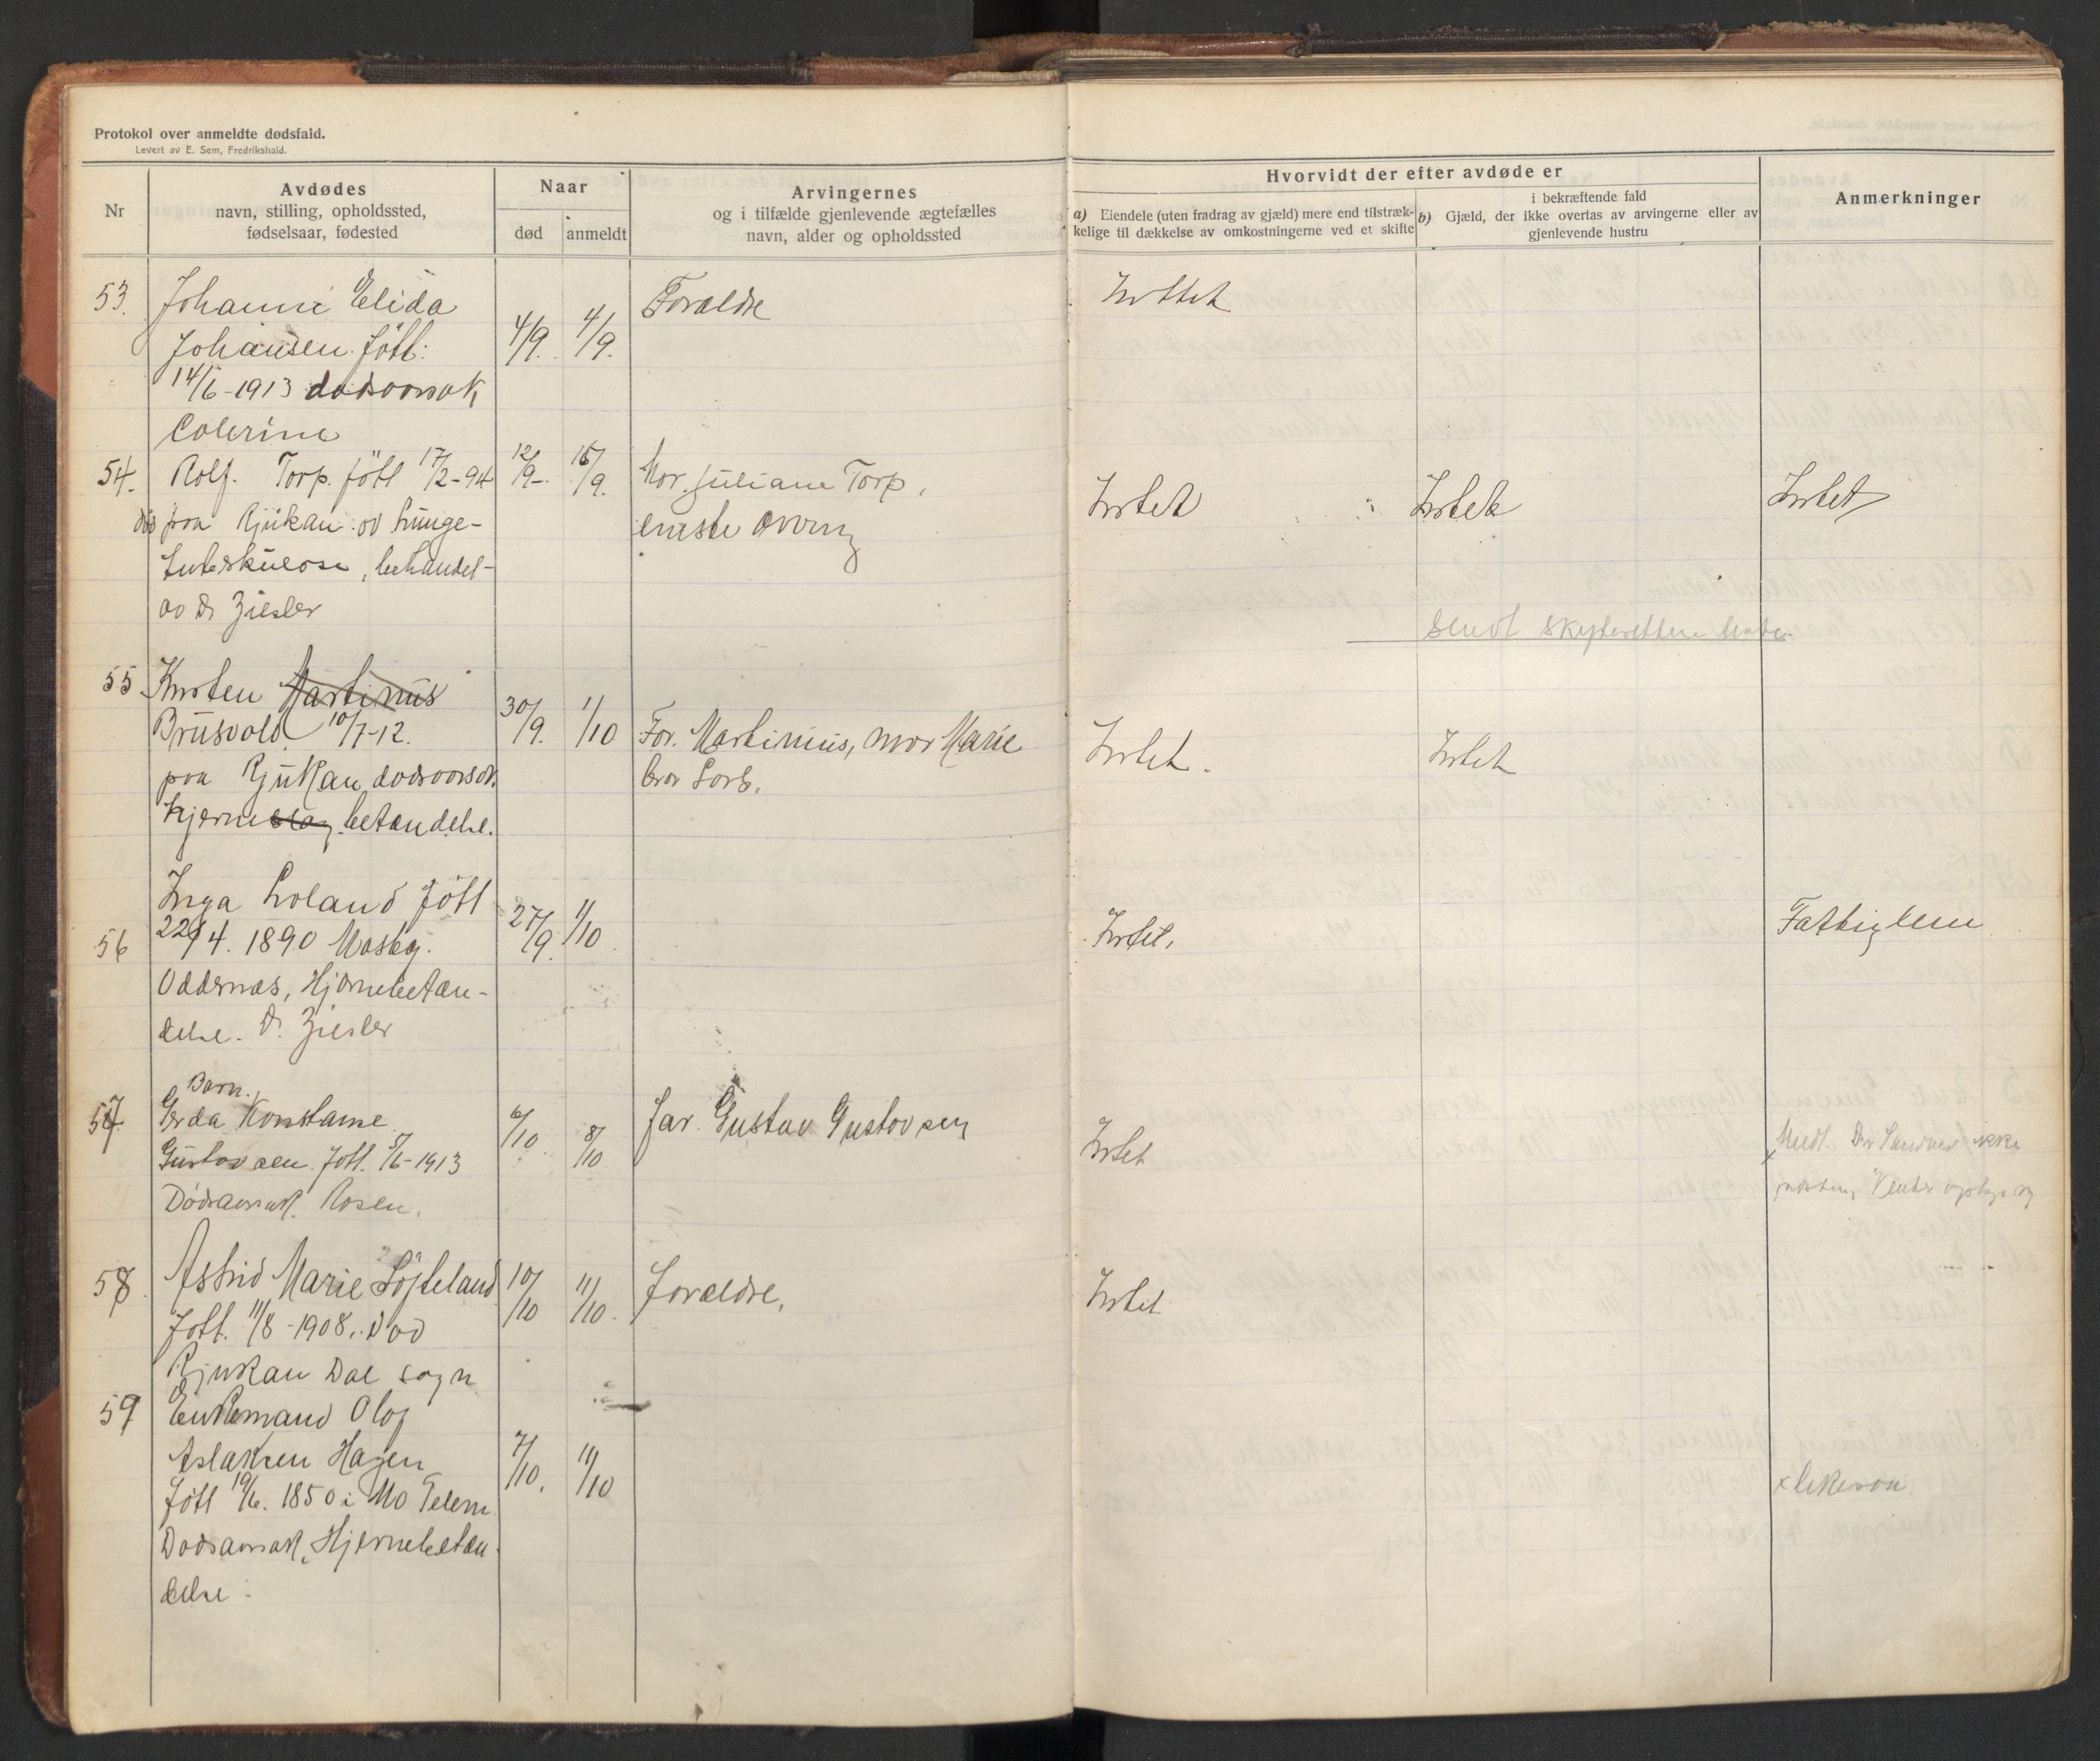 Protokol over anmeldte dødsfald.
Levert av E. Sem, Fredrikshald.
Nr
Avdødes
navn, stilling, opholdssted,
fødselsaar, fødested
Naar
død
anmeldt
Arvingernes
og i tilfælde gjenlevende ægtefælles
navn, alder og opholdssted
Hvorvidt der efter avdøde er
a) Eiendele (uten fradrag av gjæld) mere end tilstræk-
kelige til dækkelse av omkostningerne ved et skifte
i bekræftende fald
b) Gjæld, der ikke overtas av arvingerne eller av
gjenlevende hustru
Anmerkninger
53. Johanne Elida
Johansen. født:
14/6-1913 dødsorsak
Colerine
4/9. 4/9.
Foraldre
Intet
54. Rolf. Torp. født 17/2-94
død paa Rjukan av lunge-
tuberkulose, behandel-
av Dr Ziesler
12/9-. 15/9.
Mor. Juliane Torp,
eneste arving
Intet Intet Intet
Sendt skifteretten
55 Kirsten Martinus
Brusvold 10/7-12.
paa Rjukan dødsorsak
hjerneslag betændelse.
30/9. 1/10
Far. Martinius, mor Marie
bror Lars.
Intet. Intet
56
Inga Loland født
22/4. 1890 Mosby.
Oddernæs, Hjernebetæn-
delse. Dr. Ziesler
27/9. 1/10
Intet,
Fattiglem
57 Barn.
Gerda Konstanse
Gustavsen. født. 5/6-1913
Dødsaarsak. Rosen.
6/10 8/10
far. Gustav Gustavsen
Intet
ikke
58. Astrid Marie Löjteland
født. 11/8-1908. død
Rjukan Dal sogn
10/10 11/10.
foraldre,
Intet
59 Enkemand Olaf
Aslaksen Hagen
født 19/6. 1850 i Mo Telem
Dødsaarsak, Hjernebetæn-
delse.
7/10. 11/10